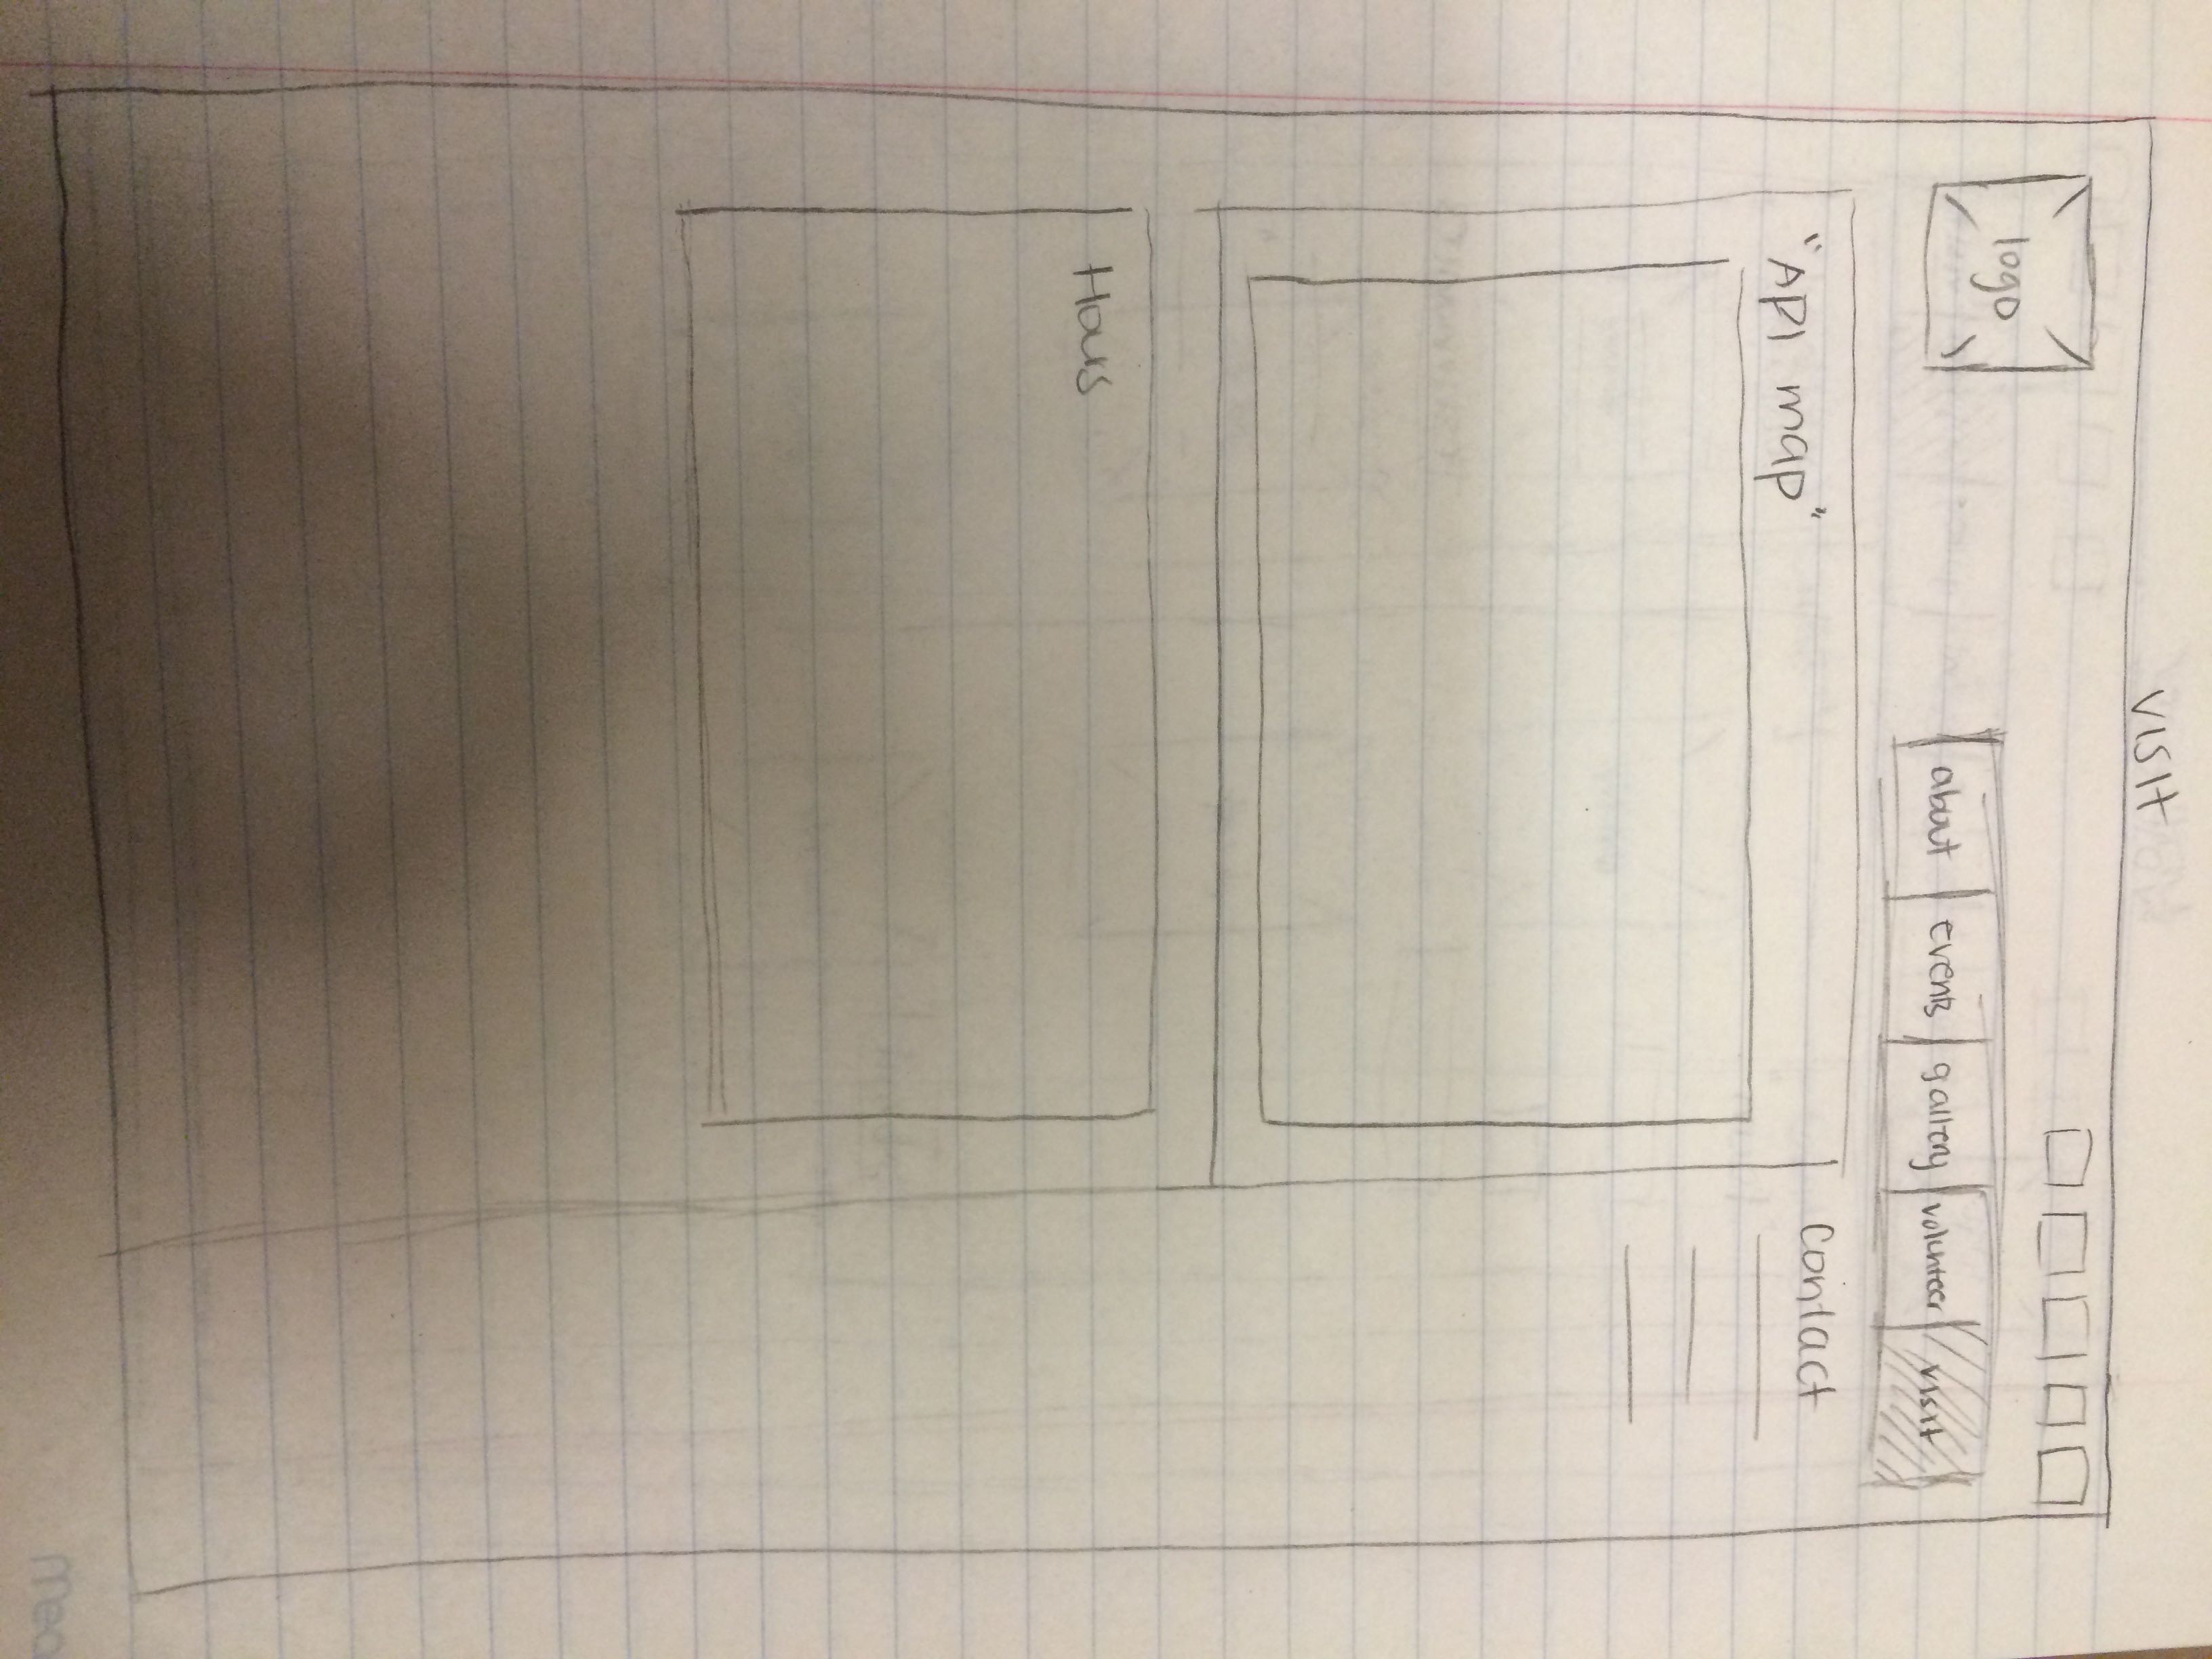 VISIT
logo
about events gallery volunteer visit
"API map"
Contact
Hours